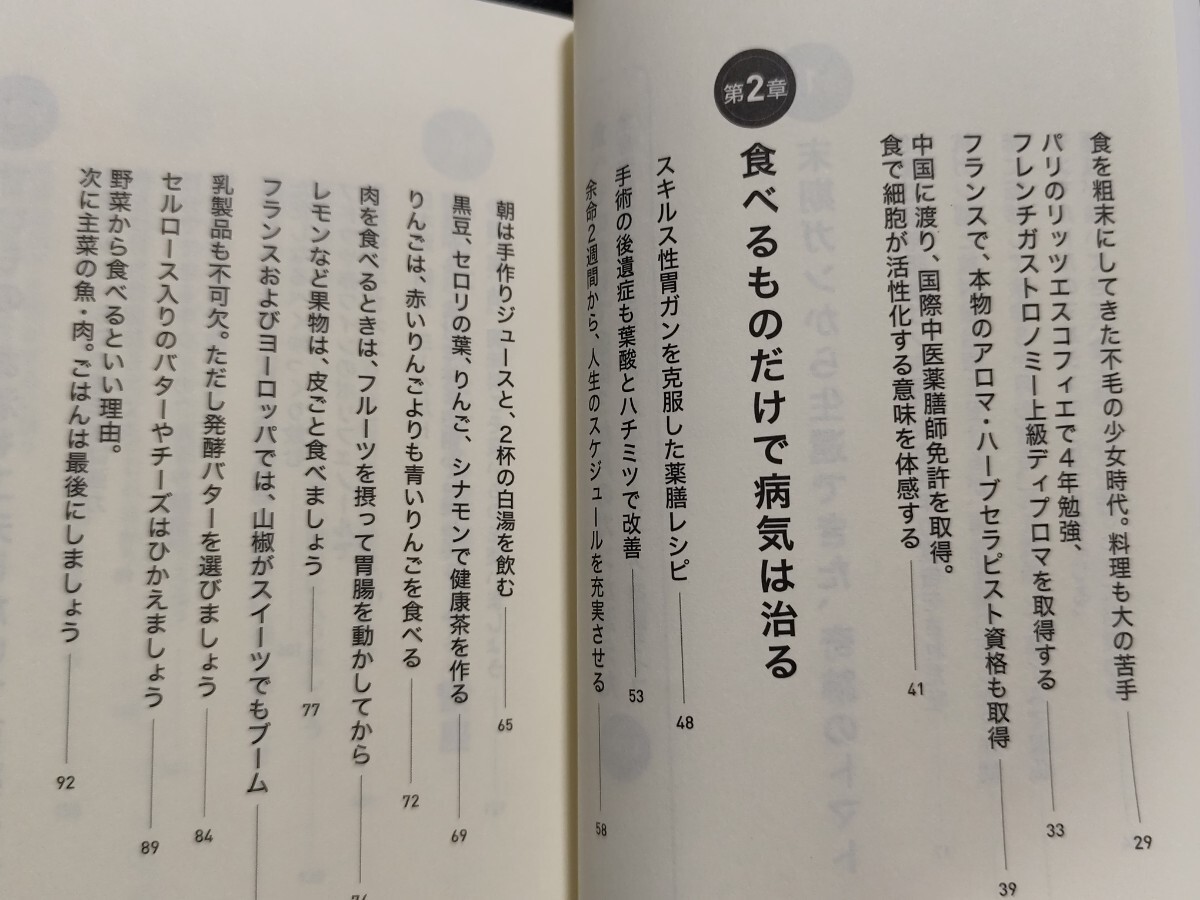 食を粗末にしてきた不毛の少女時代。料理も大の苦手 29
パリのリッツエスコフィエで4年勉強、
フレンチガストロノミー上級ディプロマを取得する 33
フランスで、本物のアロマ・ハーブセラピスト資格も取得 39
中国に渡り、国際中医薬膳師免許を取得。
食で細胞が活性化する意味を体感する 41
第2章
食べるものだけで病気は治る
スキルス性胃ガンを克服した薬膳レシピ 48
手術の後遺症も葉酸とハチミツで改善 53
余命2週間から、人生のスケジュールを充実させる 58
朝は手作りジュースと、2杯の白湯を飲む 65
黒豆、セロリの葉、りんご、シナモンで健康茶を作る 69
りんごは、赤いりんごよりも青いりんごを食べる 72
肉を食べるときは、フルーツを摂って胃腸を動かしてから
レモンなど果物は、皮ごと食べましょう 77
フランスおよびヨーロッパでは、山椒がスイーツでもブーム
乳製品も不可欠。ただし発酵バターを選びましょう 84
セルロース入りのバターやチーズはひかえましょう 89
野菜から食べるといい理由。
次に主菜の魚・肉。ごはんは最後にしましょう 92